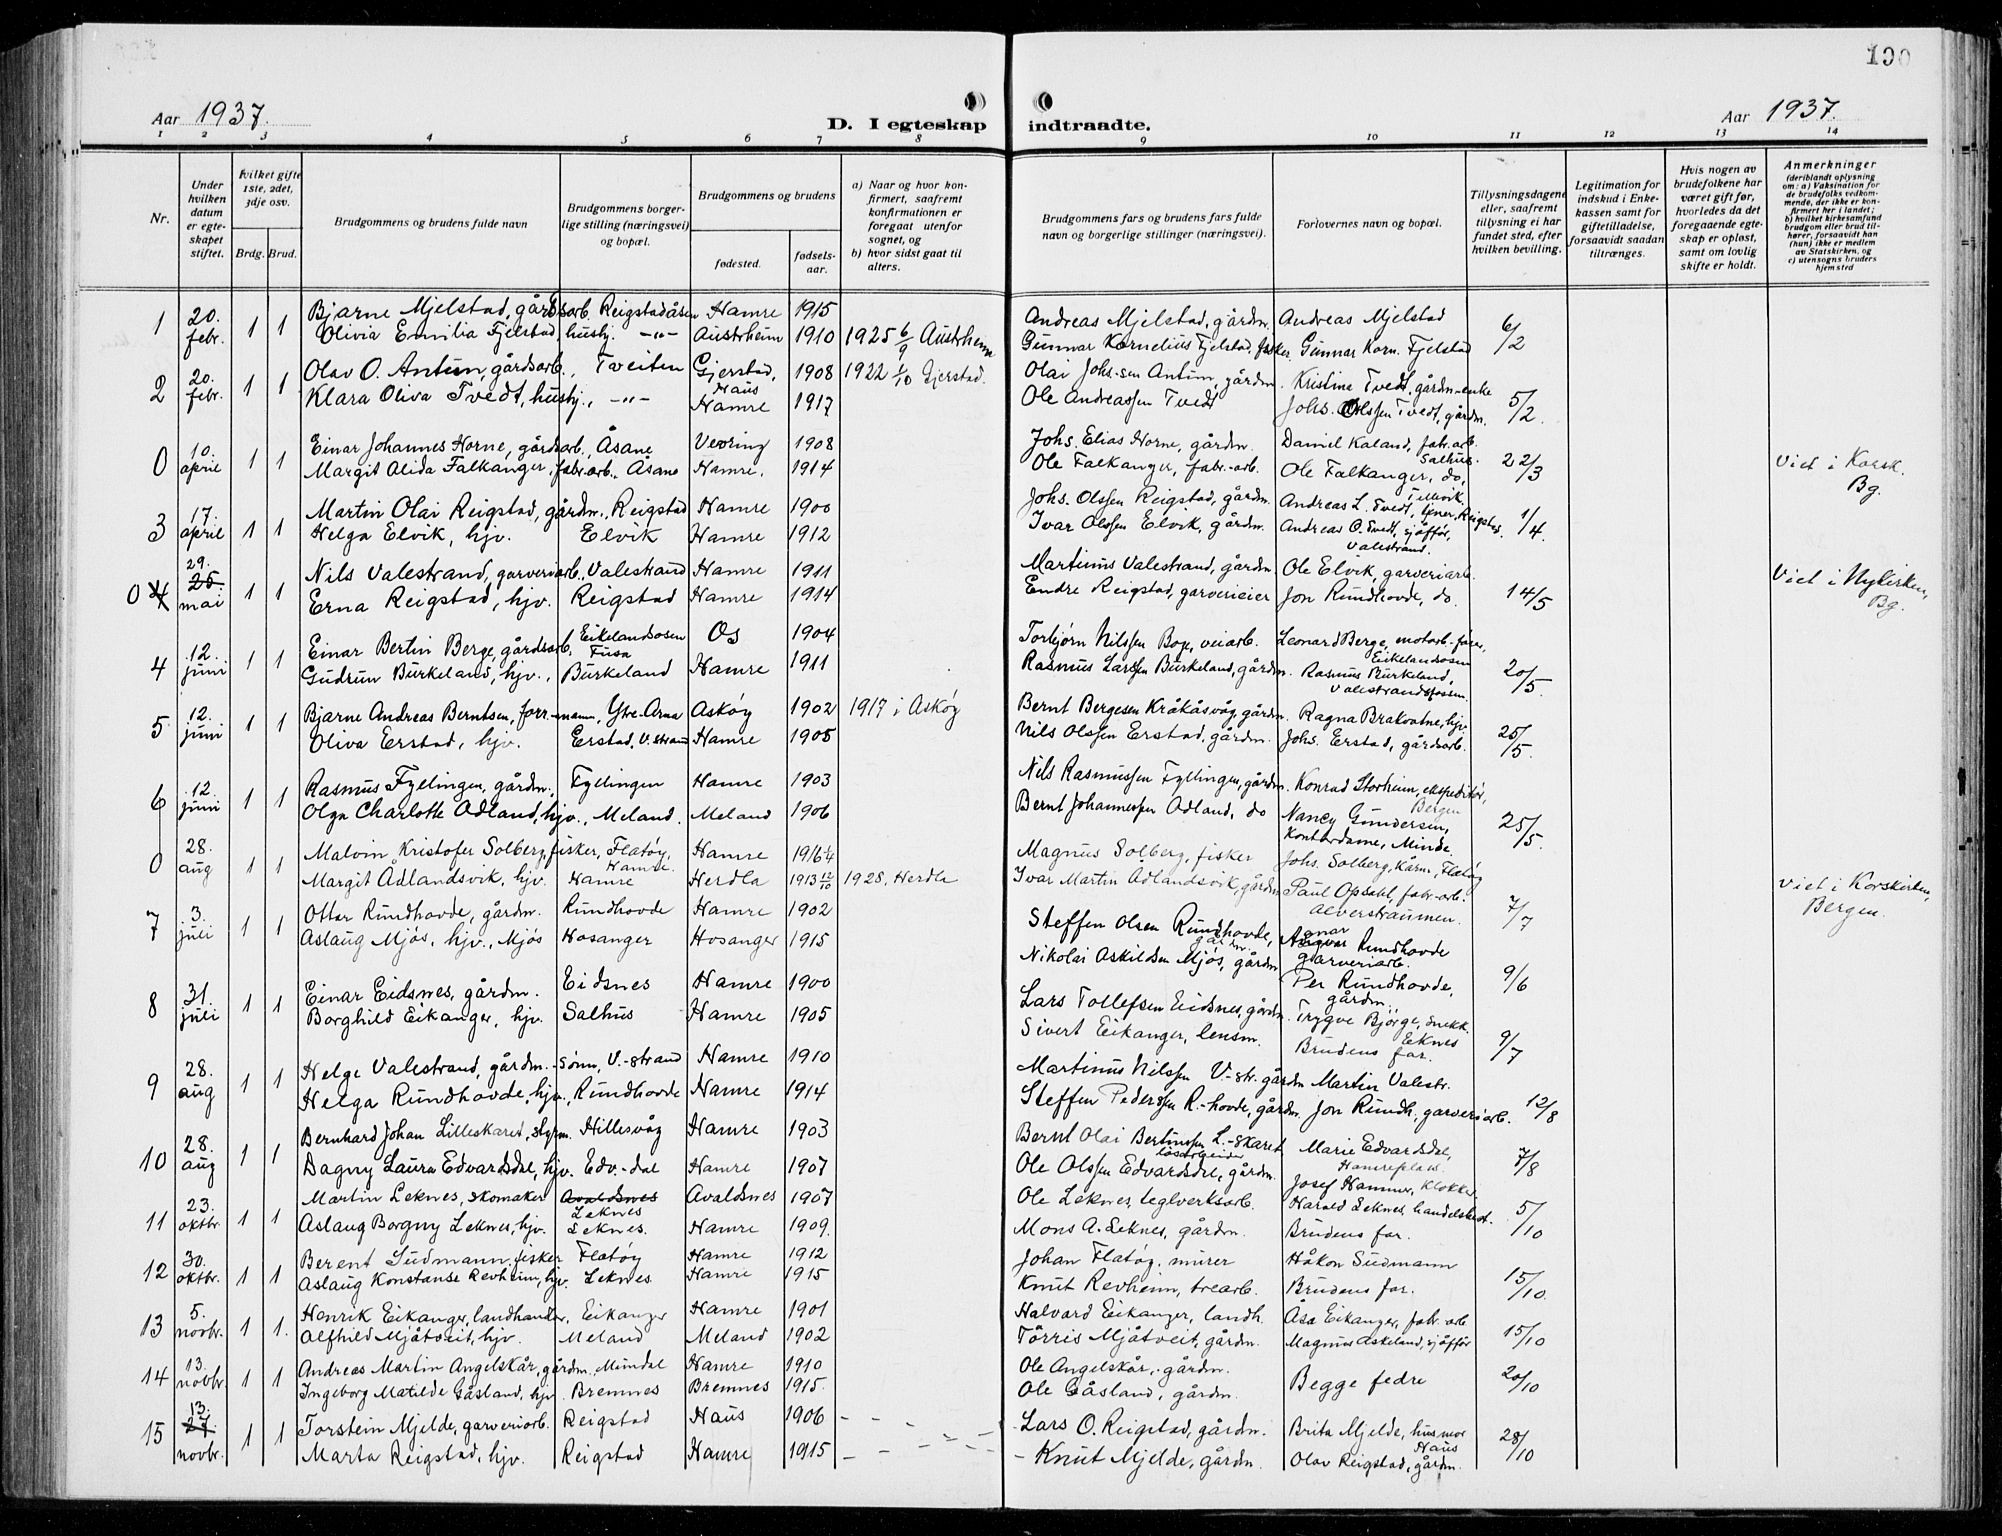 190
Aar 1937.
D. I egteskap indtraadte.
Aar 1937.
1 2 3 4 5 6 7 8 9 10 11 12 13 14
Nr.
Under hvilken datum er egteskapet stiftet.
Hvilket gifte 1ste, 2det, 3dje osv.
Brdg. Brud.
Brudgommens og brudens fulde navn
Brudgommens borgerlige stilling (næringsvei) og bopæl.
Brudgommens og brudens
fødested.
fødselsaar.
a) Naar og hvor konfirmert, saafremt konfirmationen er foregaat utenfor sognet, og
b) hvor sidst gaat til alters.
Brudgommens fars og brudens fars fulde navn og borgerlige stillinger (næringsvei).
Forlovernes navn og bopæl.
Tillysningsdagene eller, saafremt tillysning ei har fundet sted, efter hvilken bevilling.
Legitimation for indskud i Enkekassen samt for giftetilladelse, forsaavidt saadan tiltrænges.
Hvis nogen av brudefolkene har været gift før, hvorledes da det foregaaende egteskap er opløst, samt om lovlig skifte er holdt.
Anmerkninger
(deriblandt oplysning om: a) Vaksination for de brudefolks vedkommende, der ikke er konfirmert her i landet; b) hvilket kirkesamfund brudgom eller brud tilhører, forsaavidt han (hun) ikke er medlem av Statskirken, og c) utensogns bruders hjemsted
1 20. febr. 1 1 Bjarne Mjelstad, gårdsarb. Reigstadåsen Hamre 1915 Andreas Mjelstad, gårdm. Andreas Mjelstad 6/2
Olivia Emilia Fjelstad, hushj. -"- Austrheim 1910 1925 6/9 Austrheim Gunnar Kornelius Fjelstad, fisker Gunnar Korn. Fjelstad
2 20. febr. 1 1 Olav O. Antun, gårdsarb., Tveiten Gjerstad, Haus 1908 1922 1/10 Gjerstad. Olai Johs-sen Antun, gårdm. Kristina Tvedt, gårdm-enke 5/2
Klara Oliva Tvedt, hushj., -"- Hamre 1917 Ole Andreassen Tvedt Johs. Olssen Tvedt, gårdm.
0 10. april 1 1 Einar Johannes Horne, gårdsarb., Åsane Vevring 1908 Johs. Elias Horne, gårdm. Daniel Kaland, fabr.arb. Salhus. 22/3 Viet i Korsk. Bg.
Margit Alida Falkanger, fabr.arb., Åsane Hamre. 1914 Ole Falkanger, fabr.-arb. Ole Falkanger, do,
3 17. april 1 1 Martin Olai Reigstad, gårdm., Reigstad Hamre 1900 Johs. Olssen Reigstad, gårdm. Andreas L. Tvedt, Reigstad. 1/4.
Helga Elvik, hjv. Elvik Hamre 1912 Ivar Olssen Elvik, gårdm. Andreas O. Tvedt, sjåfför, Valestrand.
0 4 29. 25 mai 1 1 Nils Valestrand, garveriarb., Valestrand Hamre 1911 Martinus Valestrand, gårdm. Ole Elvik, garveriarb. 14/5 Viet i Nykirken, Bg.
Erna Reigstad, hjv. Reigstad Hamre 1914 Endre Reigstad, garverieier Jon Rundhovde, do.
4 12. juni 1 1 Einar Bertin Berge, gårdsarb. Eikelandsosen Fusa Os 1904 Torbjørn Nilssen Boge, veiarb. Leonard Berge, motorb.-fører, Eikelandsosen 20/5.
Gudrun Burkeland, hjv., Burkeland Hamre 1911 Rasmus Larssen Burkeland, gårdm. Rasmus Burkeland, Valestrandsfossen.
5 12. juni 1 1 Bjarne Andreas Berntsen, forr.-mann, Ytre-Arna Askøy 1902 1917 i Askøy Bernt Bergesen Kråkåsvåg, gårdm. Ragna Brakvatne, hjv. 25/5.
Oliva Erstad, hjv. Erstad, V. strand Hamre 1905 Nils Olssen Erstad, gårdm. Johs. Erstad, gårdsarb.
6 12. juni 1 1 Rasmus Fyllingen, gårdm., Fyllingen Hamre 1903 Nils Rasmussen Fyllingen, gårdm. Konrad Storheim, ekspeditør, Bergen 25/5.
Olga Charlotte Ådland, hjv., Meland. Meland 1906 Bernt Johannessen Ådland, do Nancy Gundersen, Kontordame, Minde.
0 28. aug 1 1 Malvin Kristofer Solberg, fisker, Flatøy, Hamre. Hamre 1916 1/4 Magnus Solberg, fisker Johs. Solberg, Flatøy 7/7 Viet i Korskirken, Bergen.
Margit Ådlandsvik, hjv. Hamre Herdla 1913 12/10 1928, Herdla Ivar Martin Ådlandsvik, gårdm Paul Opsahl, fabr-arb. Alverstraumen.
7 3. juli 1 1 Ottar Rundhovde, gårdm. Rundhovde Hamre 1902 Steffen Olsen Rundhovde, gårdm. Rundhovde garveriarb. 9/6
Aslaug Mjøs, hjv., Mjøs Hosanger Hosanger 1915 Nikolai Askildsen Mjøs, gårdm Per Rundhovde, gårdm.
8 31. juli 1 1 Einar Eidsnes, gårdm. Eidsnes Hamre 1900 Lars Tollefsen Eidsnes, gårdm. Trygve Bjørge, snekk. Eknes 9/7
Borghild Eikanger, hjv. Salhus Hamre 1905 Sivert Eikanger, lensm. Brudens far.
9 28. aug 1 1 Helge Valestrand, gårdm.-sønn, V.-strand Hamre 1910 Martinus Nilssen V-str. gårdm Martin Valestr. 12/8
Helga Rundhovde, hjv., Rundhovde Hamre 1914 Steffen Pederssen R.-hovde, gårdm. Jon Rundh., garveriarb.
10 28. aug 1 1 Bernhard Johan Lilleskaret, styrm. Hillesvåg Hamre 1903 Bernt Olai Bertinssen L.-skaret, løsarbeider Marie Edvardsdal, Hamreplass. 7/8
Dagny Laura Edvardsdal, hjv. Edv.-dal Hamre 1907 Ole Olssen Edvardsdal, gårdm. Josef Hammer, klokker
11 23. oktbr 1 1 Martin Leknes, skomaker Avaldsnes Leknes Avaldsnes 1907 Ole Leknes, teglverksarb. Harald Leknes, handelsbest. 5/10
Aslaug Borgny Leknes, hjv. Leknes. Hamre 1909. Mons A. Leknes, gårdm. Brudens far.
12 30. oktbr. 1 1 Berent Sudmann, fisker Flatøy Hamre 1912 Johan Flatøy, murer Håkon Sudmann 15/10
Aslaug Konstanse Revheim, hjv. Leknes. Hamre 1915 Knut Revheim, trearb. Brudens far.
13 5. novbr. 1 1. Henrik Eikanger, landhandler, Eikanger Hamre 1901 Halvard Eikanger, landh. Åsa Eikanger, fabr.arb 15/10
Alfhild Mjåtveit, hjv. Meland Meland 1902 Tørris Mjåtveit, gårdm. Magnus Askeland, sjåffør
14 13. novbr. 1 1 Andreas Martin Angelskår, gårdm. Mundal Hamre 1910 Ole Angelskår, gårdm. Begge fedre 20/10
Ingeborg Matilde Gåsland, hjv. Bremnes Bremnes 1915. Ole Gåsland, gårdm.
15 13. 27. novbr. 1 1 Torstein Mjelde, garveriarb. Reigstad Haus 1906 - Lars O. Reigstad, gårdm. Brita Mjelde, husmor Haus 28/10
Marta Reigstad, hjv. Reigstad Hamre 1915 - Knut Mjelde, gårdm. Olav Reigstad, gårdm.